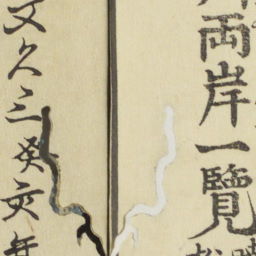 両岸一覧
文久三癸亥年